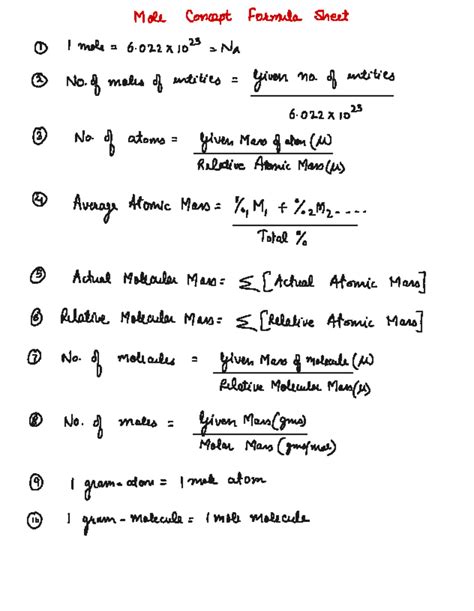 Mole Concept Formula Sheet
① 1 mole = 6.022 x 10²³ = NA
② No. of moles of entities = Given no. of entities
6.022 x 10²³
③ No of atoms = Given Mass of atom (u)
Relative Atomic Mass (u)
④ Average Atomic Mass = %₁ M₁ + %₂ M₂ - - - -
Total %
⑤ Actual Molecular Mass = Σ [Actual Atomic Mass]
⑥ Relative Molecular Mass = Σ [Relative Atomic Mass]
⑦ No. of molecules = Given Mass of molecule (u)
Relative Molecular Mass (u)
⑧ No. of moles = Given Mass (gms)
Molar Mass (gms/mol)
⑨ 1 gram-atom = 1 mole atom
⑩ 1 gram-molecule = 1 mole molecule